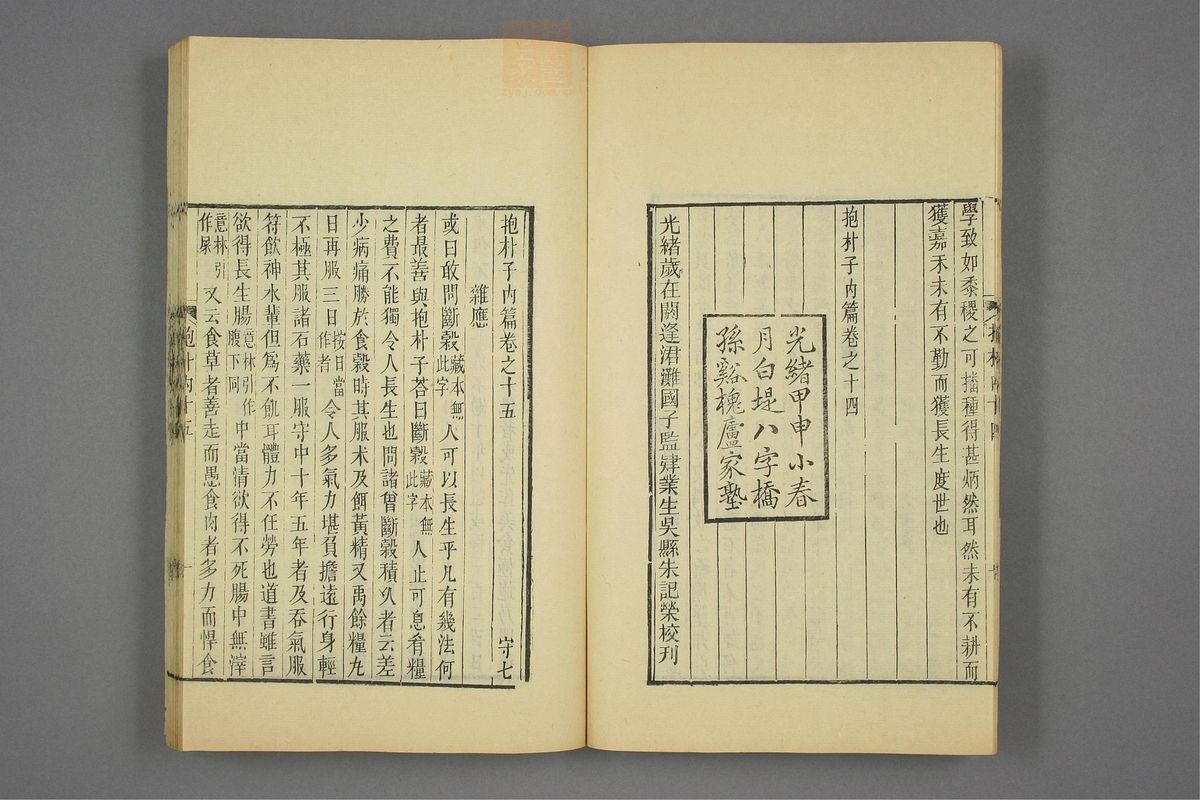 學致如黍稷之可播種得甚炳然耳然未有不耕而
獲嘉禾未有不勤而獲長生度世也
抱朴子內篇卷之十四
光緒甲申小春
月白堤八字橋
孫谿槐廬家塾
光緒歲在閼逢涒灘國子監肄業生吳縣朱記榮校刊
抱朴子內篇卷之十五 守七
雜應
或曰敢問斷穀藏本無此字人可以長生乎凡有幾法何
者最善與抱朴子荅曰斷穀藏本無此字人止可息肴糧
之費不能獨令人長生也問諸曾斷穀積久者云差
少病痛勝於食穀時其服朮及餌黃精又禹餘糧丸
日再服三日按日當作者令人多氣力堪負擔遠行身輕
不極其服諸石藥一服守中十年五年者及吞氣服
符飲神水輩但爲不飢耳體力不任勞也道書雖言
欲得長生腸意林引作腹下同中當清欲得不死腸中無滓
意林引作屎又云食草者善走而愚食肉者多力而悍食
抱朴內十五